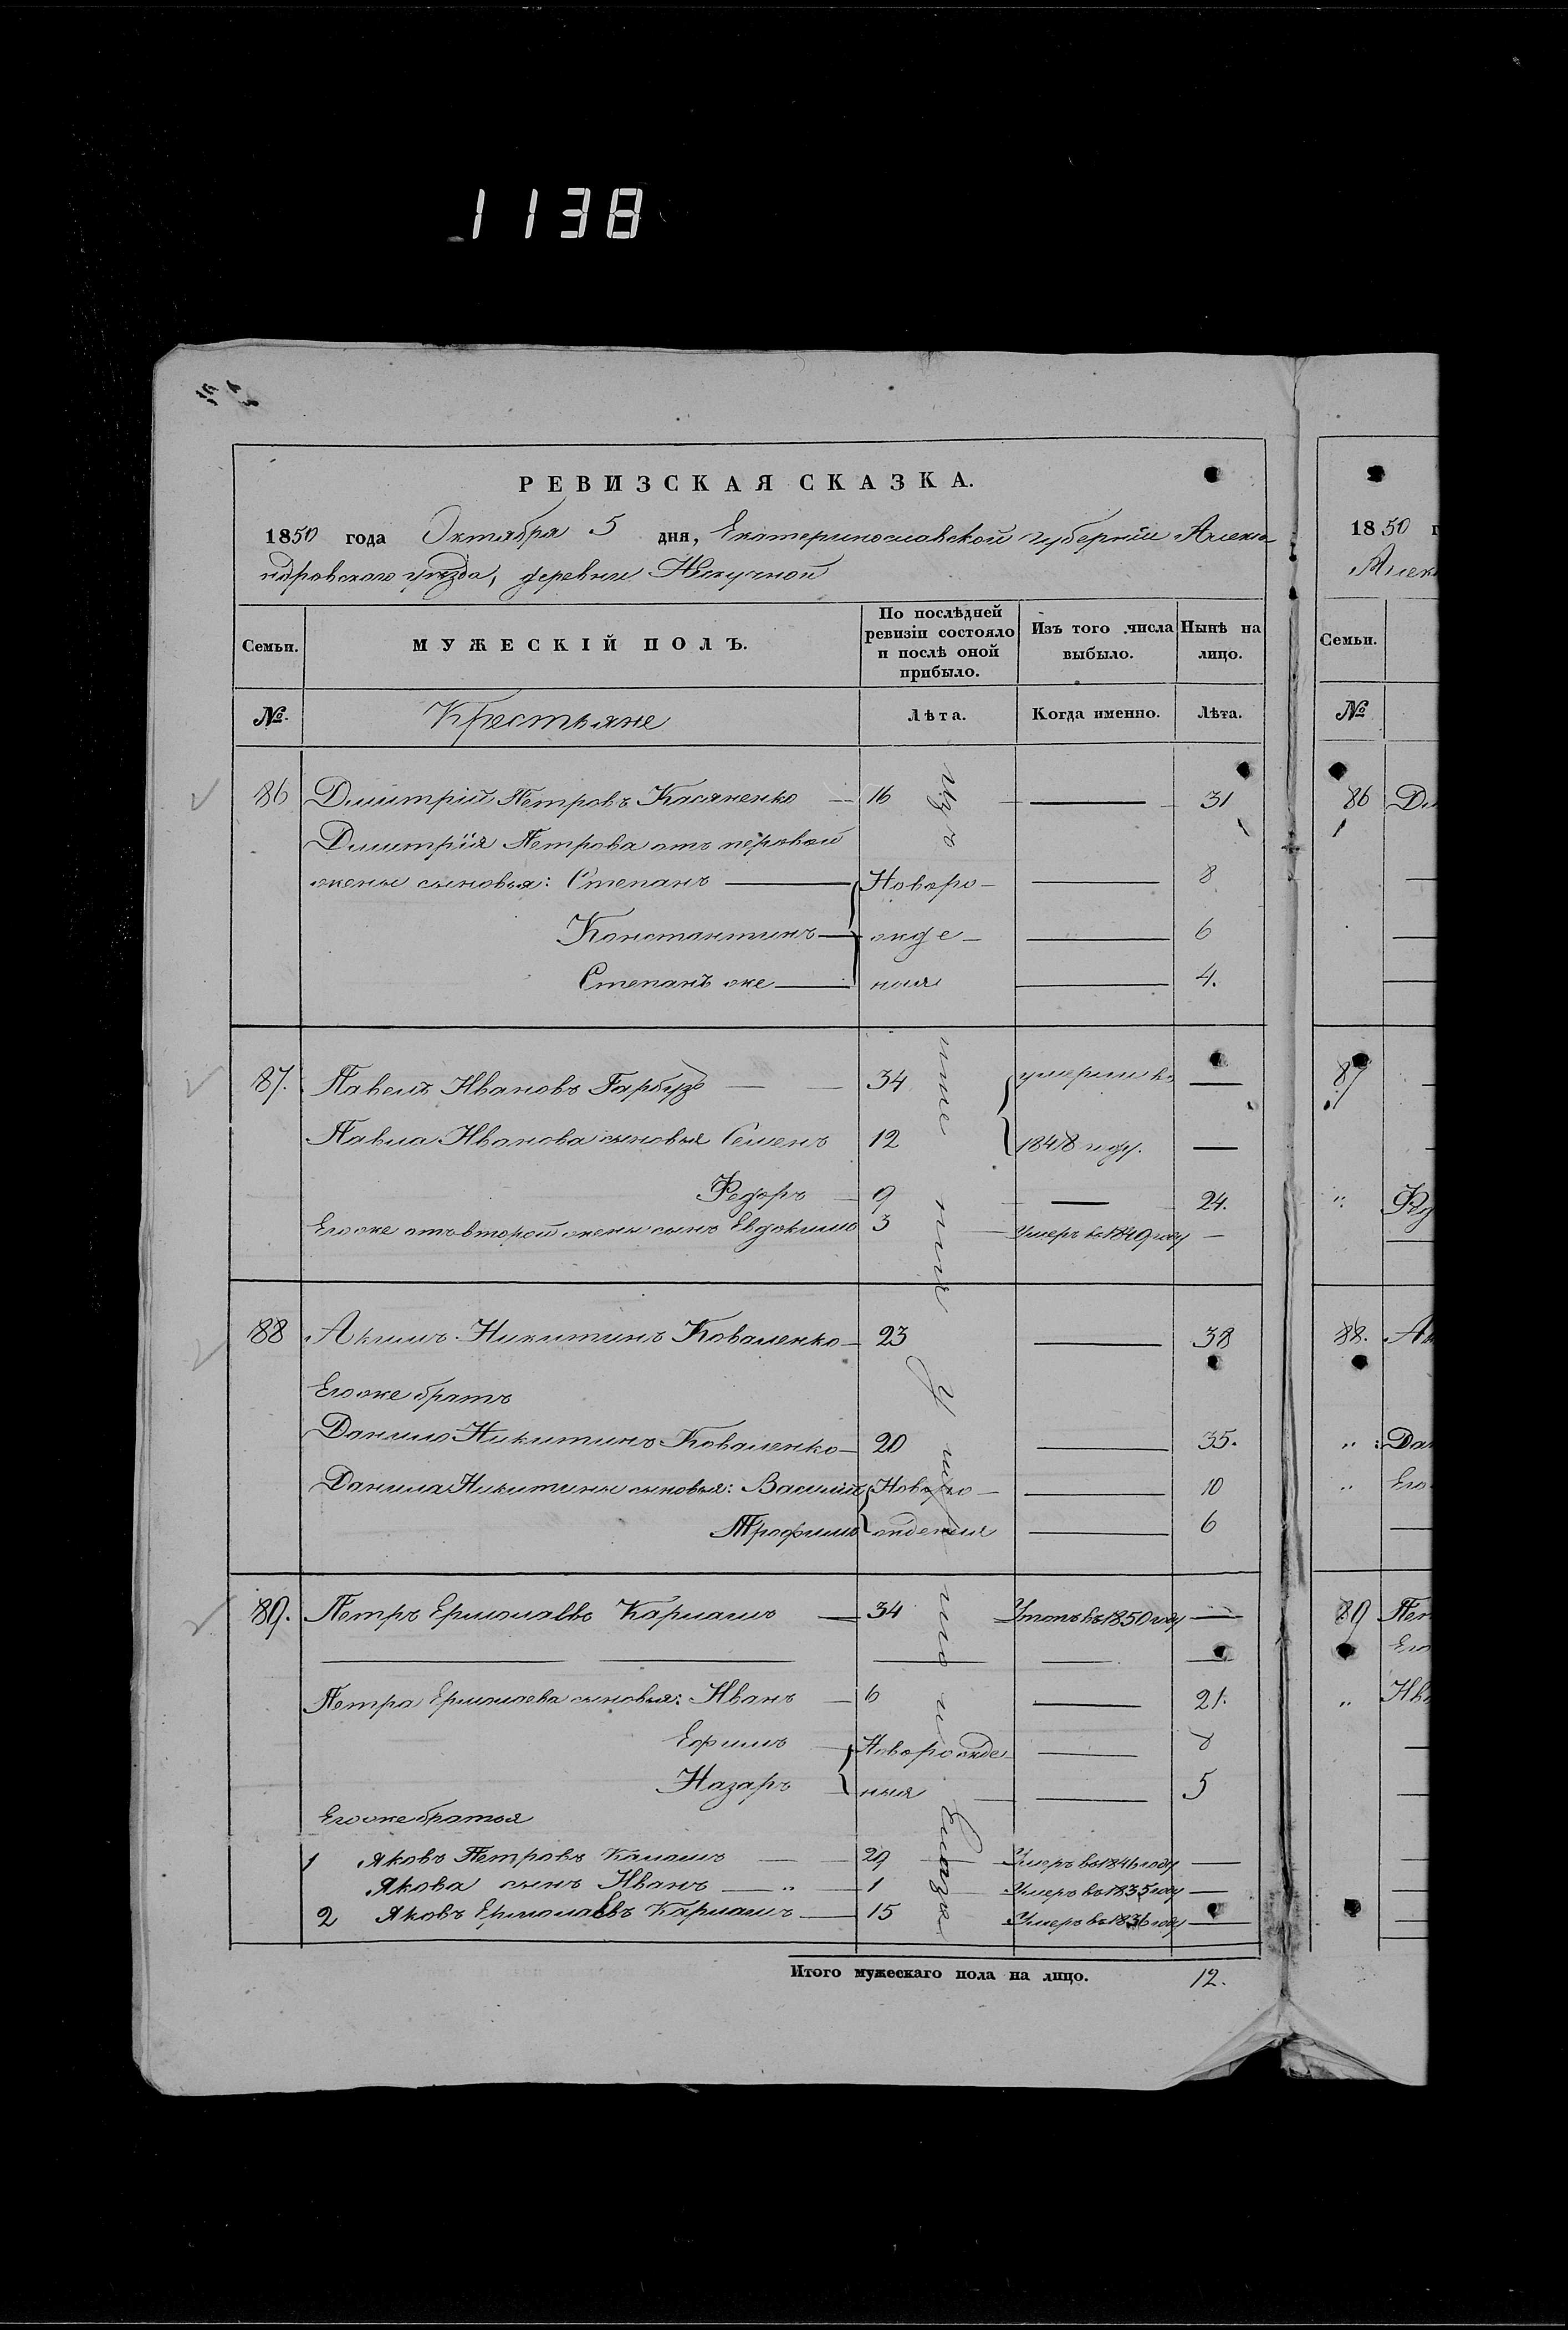 1138
РЕВИЗСКАЯ СКАЗКА.
1850 года Октября 5 дня, Екатеринославской губерніи Алекса-
ндровского уезда, деревни Нескучной
Семьи. МУЖЕСКІЙ ПОЛЪ. По послѣдней ревизіи состояло и послѣ оной прибыло. Изъ того числа выбыло. Нынѣ на лицо.
№. Крестьяне Лѣта. Когда именно. Лѣта.
86 Дмитрій Петровъ Касяненко 16 31
Дмитрія Петрова отъ первой
жены сыновья: Степанъ Новоро- 8
Константинъ жде- 6
Степанъ же ныя 4.
87. Павелъ Ивановъ Гарбузъ 34 умерли въ
Павла Иванова сыновья Семенъ 12 1848 году.
Федоръ 9 24.
Его же отъ второй жены сынъ Евдокимъ 3 Умеръ въ 1849 году
88 Акимъ Никитинъ Коваленко 23 38
Его же братъ
Данило Никитинъ Коваленко 20 35.
Данила Никитина сыновья: Василій Новоро- 10
Трофимъ жденыя 6
89. Петръ Ермолаевъ Кармашъ 34 Утопъ въ 1850 году
Петра Ермолаева сыновья: Иванъ 6 21.
Ефимъ Новорожде- 8
Назаръ ныя 5
Его же братья
1 Яковъ Петровъ 29 Умеръ въ 1846 году
Якова сынъ Иванъ " 1 Умеръ въ 1835 году
2 Яковъ Ермолаевъ Кармашъ 15 Умеръ въ 1836 году
Итого мужескаго пола на лицо. 12.
1850 г
Алек
Семьи.
№
86 Д
87
" Фед
88. Ак
" Дан
" Его
89 Пет
Его
" Ив